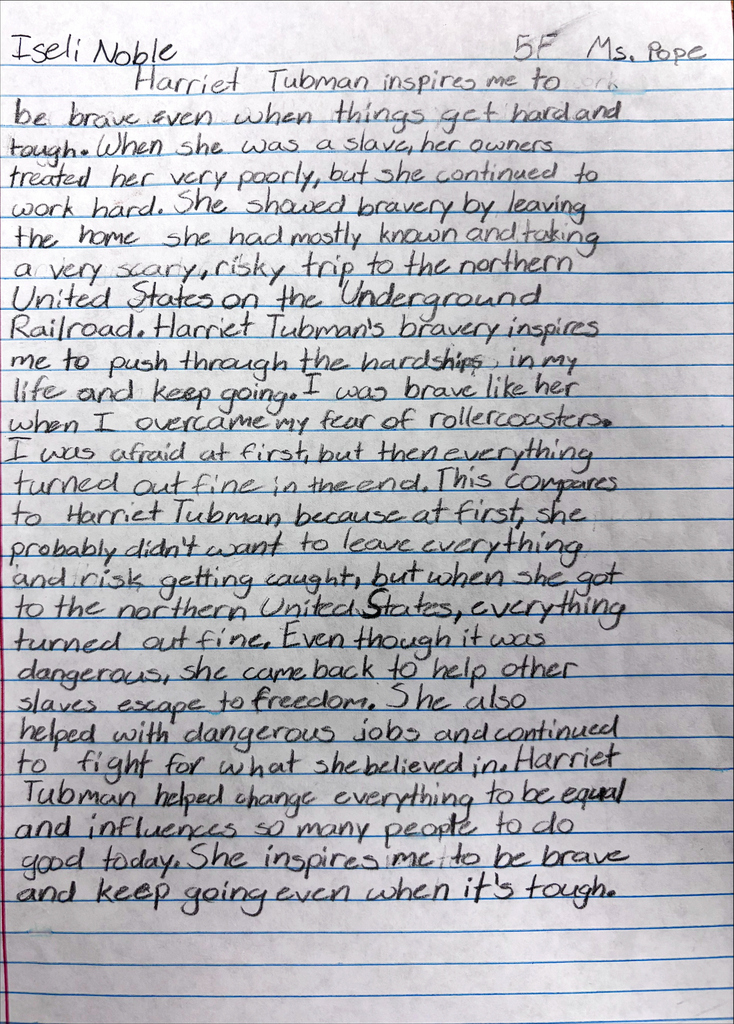 Iseli Noble 5F Ms. Pope
Harriet Tubman inspires me to
be brave even when things get hard and
tough. When she was a slave, her owners
treated her very poorly, but she continued to
work hard. She showed bravery by leaving
the home she had mostly known and taking
a very scary, risky trip to the northern
United States on the Underground
Railroad. Harriet Tubman's bravery inspires
me to push through the hardships in my
life and keep going. I was brave like her
when I overcame my fear of rollercoasters.
I was afraid at first, but then everything
turned out fine in the end. This compares
to Harriet Tubman because at first, she
probably didn't want to leave everything
and risk getting caught, but when she got
to the northern United States, everything
turned out fine. Even though it was
dangerous, she came back to help other
slaves escape to freedom. She also
helped with dangerous jobs and continued
to fight for what she believed in. Harriet
Tubman helped change everything to be equal
and influences so many people to do
good today. She inspires me to be brave
and keep going even when it's tough.